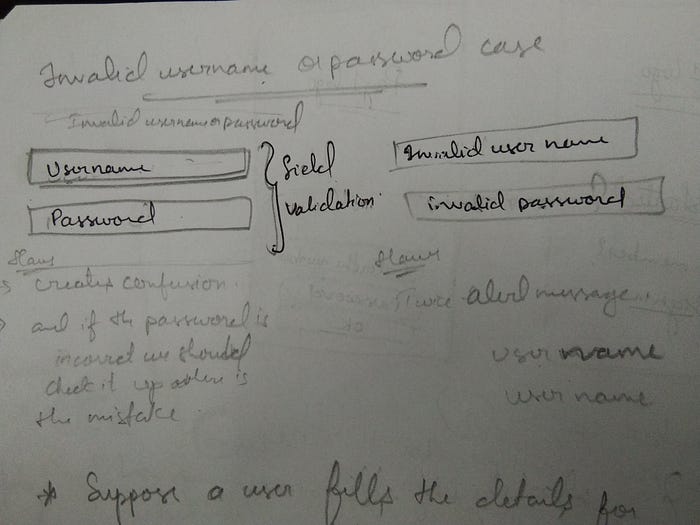 Invalid username or password case
Invalid username or password
Username
Password
field
validation
Invalid user name
invalid password
flaws
creates confusion.
and if the password is
incorrect we should
check it up where is
the mistake.
flaws
Twice alert message.
username
username
* Suppose a user fills the details for